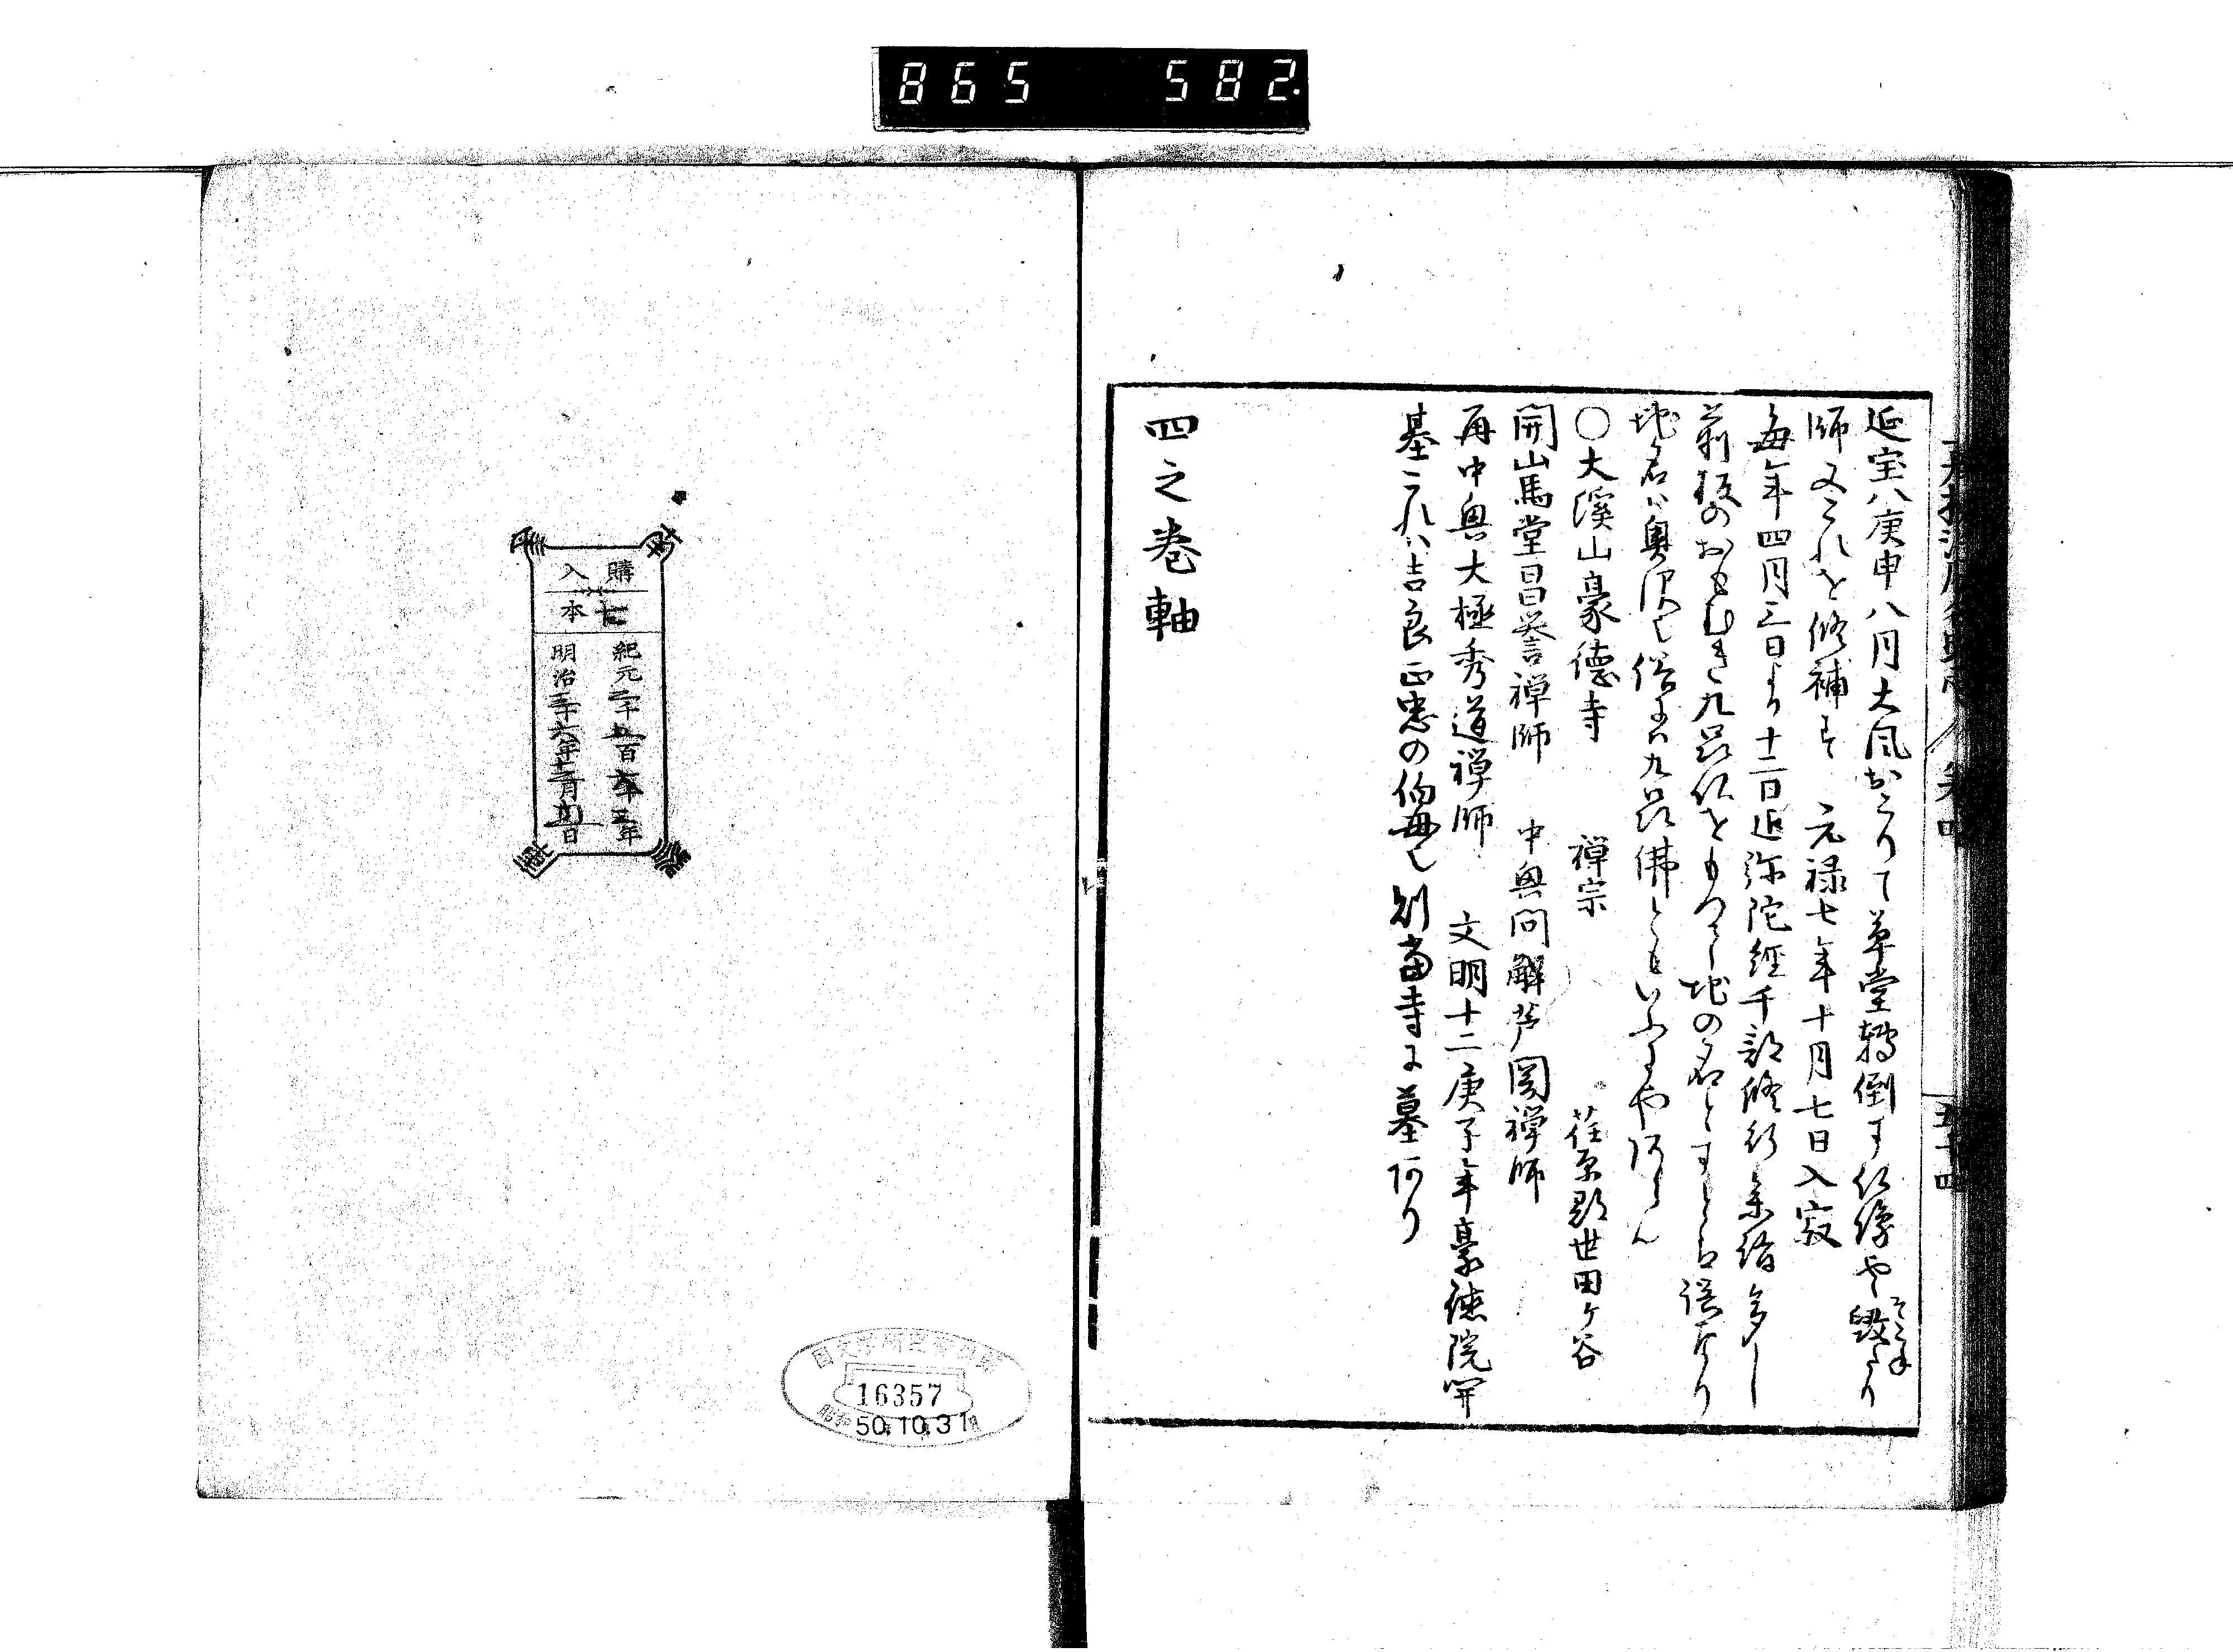 865 582.
延宝八庚申八月大風おこりて草堂轉倒す仏像や毀たり
そこね
師又これを修補す 元禄七年十月七日入寂
毎年四月三日より十二日迄弥陀經千部修行參詣多し
前板のおもむき九品仏をもつて地の名とすとは誤なり
地名は奥沢也俗には九品佛ともいふにやあらん
〇大溪山豪徳寺 禅宗 荏原郡世田ヶ谷
開山馬堂昌誉禅師 中興門解芦関禅師
再中興大極秀道禅師 文明十二庚子年豪徳院開
基これハ吉良正忠の伯母也則當寺に墓あり
四之巻軸
購入
本
紀元二千五百六十三年
明治三十六年十二月 日
16357
昭和50.10.31